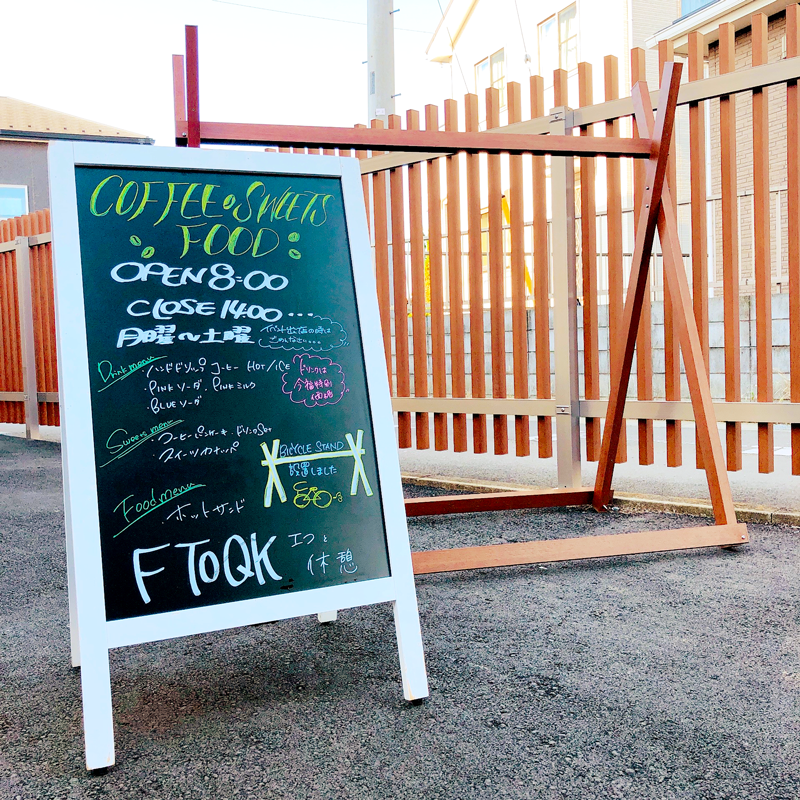 COFFEE・SWEETS
FOOD
OPEN 8:00
CLOSE 14:00...
月曜〜土曜
イベント出店の時は
ごめんなさい...
Drink menu
・ハンドドリップ コーヒー HOT/ICE
・PINK ソーダ ・PINK ミルク
・BLUE ソーダ
ドリンクは
今福特別
価格
Sweets menu
・コーヒーピンサーキ ・ドリンクSet
スイーツ
BICYCLE STAND
設置しました
Food menu
・ホットサンド
F ToQK
エっと
休憩